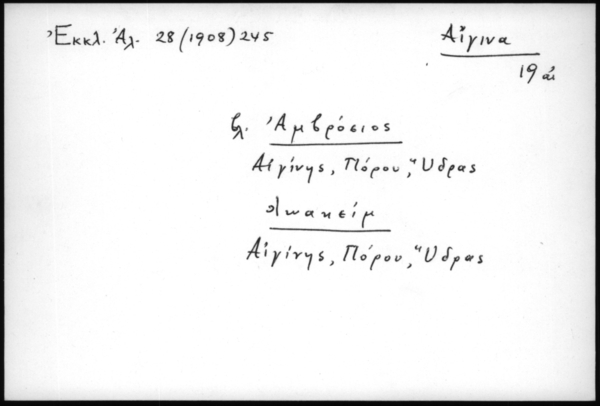 Ἐκκλ. Ἀλ. 28 (1908) 245
Αἴγινα
19 αι
βλ. Ἀμβρόσιος
Αἰγίνης, Πόρου, Ὕδρας
Ἰωακείμ
Αἰγίνης, Πόρου, Ὕδρας